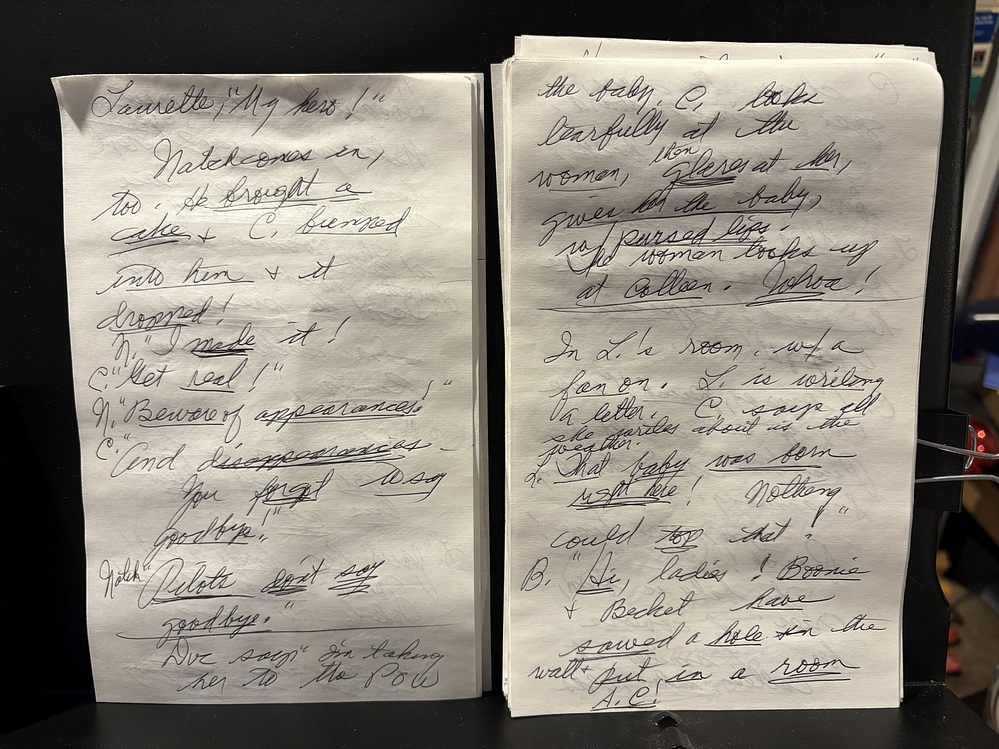 Laurette, "My hero!"
Natch comes in,
too. He brought a
cake + C. bumped
into him + it
dropped!
N. "I made it!
C. "Get real!"
N. "Beware of appearances!"
C. "And disappearances.
You forgot to say
goodbye!"
Natch "Pilots don't say
goodbye."
Doc says "I'm taking
her to the POW
the baby. C. looks
tearfully at the
woman, then glares at her,
gives her the baby,
w/ pursed lips.
The woman looks up
at Colleen. Whoa!
In L.'s room, w/ a
fan on. L. is writing
a letter. C. says all
she writes about is the
weather.
L. That baby was born
right here! Nothing
could top that!"
B. "Hi, ladies! Boonie
+ Becket have
sawed a hole in the
wall + put in a room
A.C!